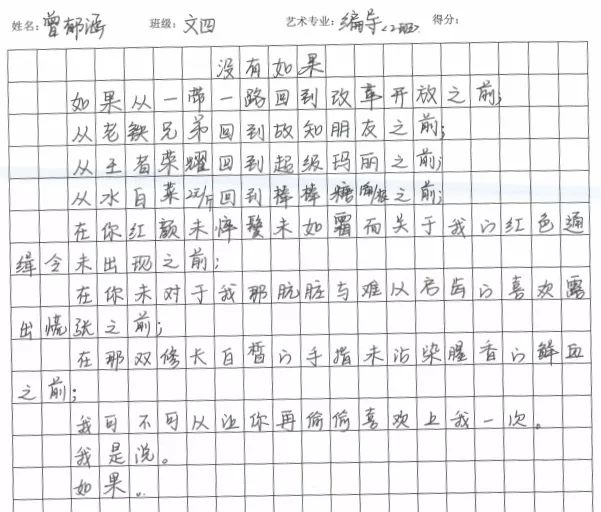 姓名：曾郁涵 班级：文四 艺术专业：编导<2班> 得分：
没有如果
如果从一带一路回到改革开放之前；
从老铁兄弟回到故知朋友之前；
从王者荣耀回到超级玛丽之前；
从水白菜2元/斤回到棒棒糖 之前；
在你红颜未悴鬓未如霜而关于我的红色通
缉令未出现之前；
在你未对于我那肮脏与难以启齿的喜欢露
出慌张之前；
在那双修长白皙的手指未沾染腥香的鲜血
之前；
我可不可以让你再偷偷喜欢上我一次。
我是说。
如果。